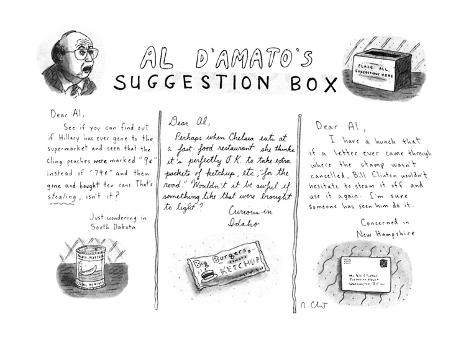 AL D'AMATO'S
SUGGESTION BOX
PLACE ALL
SUGGESTIONS HERE
Dear Al,
See if you can find out
if Hillary has ever gone to the
supermarket and seen that the
cling peaches were marked "9¢"
instead of "79¢" and then
gone and bought ten cans. That's
stealing, isn't it?
Just wondering in
South Dakota
Dear Al,
Perhaps when Chelsea eats at
a fast food restaurant she thinks
it's perfectly O.K. to take extra
packets of ketchup, etc, "for the
road." Wouldn't it be awful if
something like that were brought
to light?
Curious in
Idaho
Burgers
KETCHUP
Dear Al,
I have a hunch that
if a letter ever came through
where the stamp wasn't
cancelled, Bill Clinton wouldn't
hesitate to steam it off and
use it again. I'm sure
someone has seen him do it.
Concerned in
New Hampshire
R. Chast